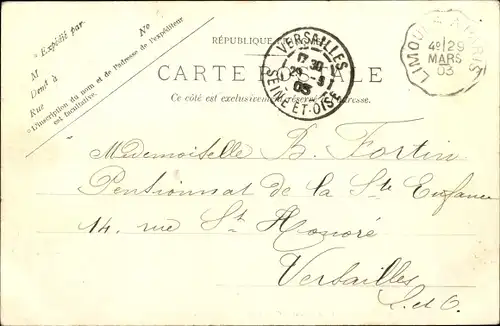 *Expédié par. N°
M
Demt à
Rue
*L'inscription du nom et de l'adresse de l'expéditeur
est facultative.
RÉPUBLIQUE
CARTE POSTALE
Ce côté est exclusivement réservé à l'adresse.
VERSAILLES
17 30
29 -3
03
SEINE-ET-OISE
LIMOURS A PARIS
4e/29
MARS
03
Mademoiselle B. Fortin
Pensionnat de la Ste Enfance
14, rue St Honoré
Versailles
S. et O.